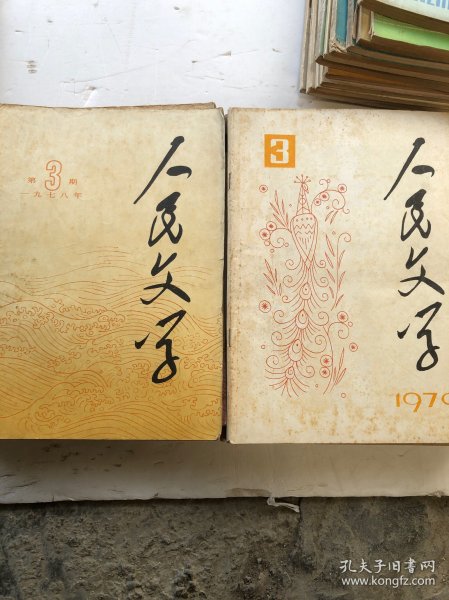 第3期
一九七八年
人民文学
3
人民文学
1979
孔夫子旧书网
www.kongfz.com